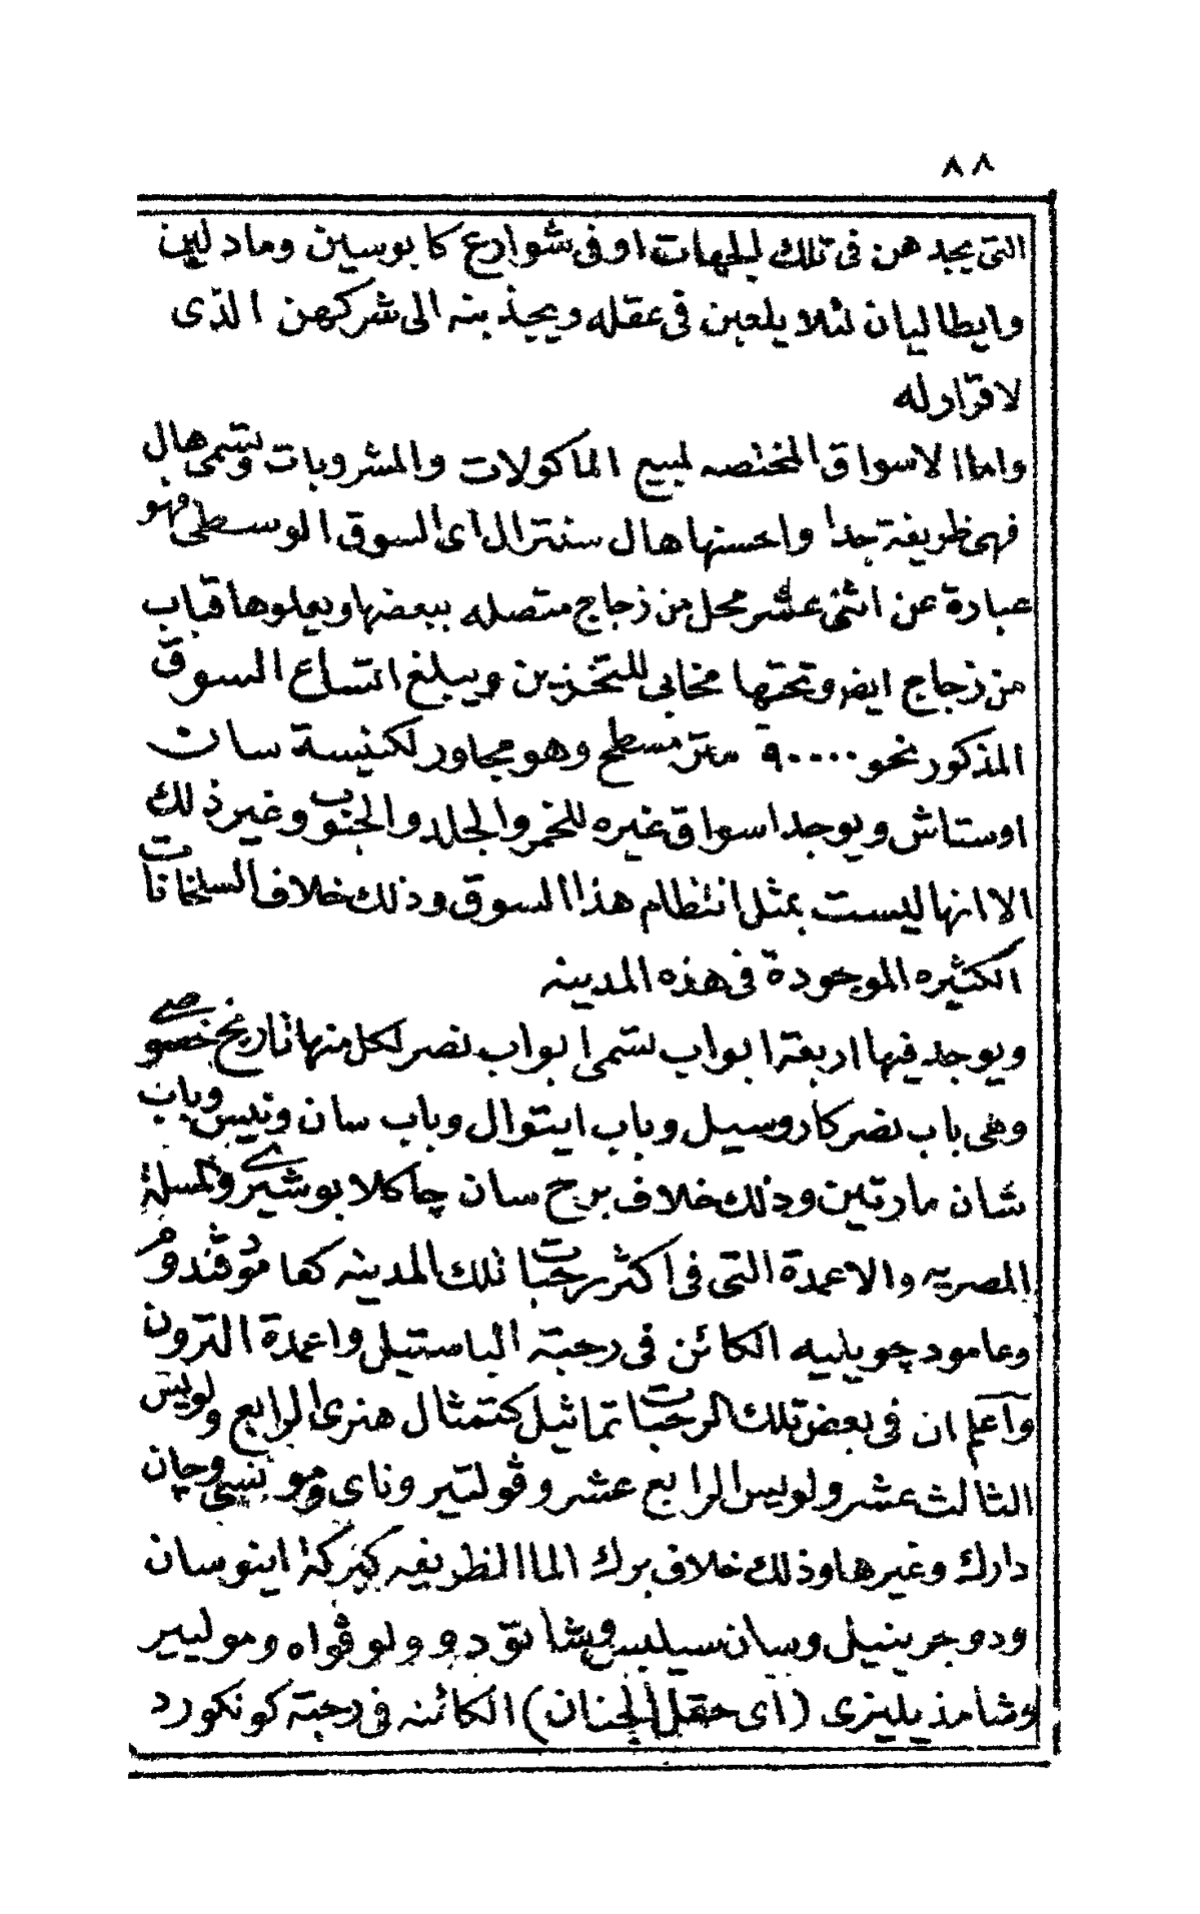 ٨٨
التى يجد هن فى تلك الجهات او فى شوارع كابوسين ومادلين
وايطاليان لئلا يلعبن فى عقله ويجذبنه الى شركهن الذى
لا قرار له
واما الاسواق المختصه لمبيع الماكولات والمشروبات وتسمى هال
فهى ظريفة جدا واحسنها هال سنترال اى السوق الوسطى فهو
عبارة عن اثنى عشر محل من زجاج متصله ببعضها ويعلوها قباب
من زجاج ايضا وتحتها مخابى للتخزين ويبلغ اتساع السوق
المذكور نحو ٩٠٠٠٠ متر مسطح وهو مجاور لكنيسة سات
اوستاش ويوجد اسواق غيره للخمر والجلد والحبوب وغير ذلك
الا انها ليست بمثل انتظام هذا السوق وذلك خلاف السلخانات
الكثيره الموجودة فى هذه المدينه
ويوجد فيها اربعة ابواب تسمى ابواب نصر لكل منها تاريخ خصوصى
وهى باب نصر كاروسيل وباب ايتوال وباب سان ونيس وباب
شان مارتين وذلك خلاف برج سان جاكلابوشيرى والمسلة
المصريه والاعمدة التى فى اكثر رحبات تلك المدينه كعامود ڤندوم
وعامود جويليه الكائن فى رحبة الباستيلى واعمدة الترون
واعلم ان فى بعض تلك الرحبات تماثيل كتمثال هنرى الرابع ولويس
الثالث عشر ولويس الرابع عشر وڤولتير وناى ومونسى وجان
دارك وغيرها وذلك خلاف برك الما الظريفه كبركة اينوسان
ودو جرينيلى وسان سيلبيس وشاتو دو ولوڤواه وموليير
وشامذيليزى (اى حقل الجنان) الكائنه فى رحبة كونكورد